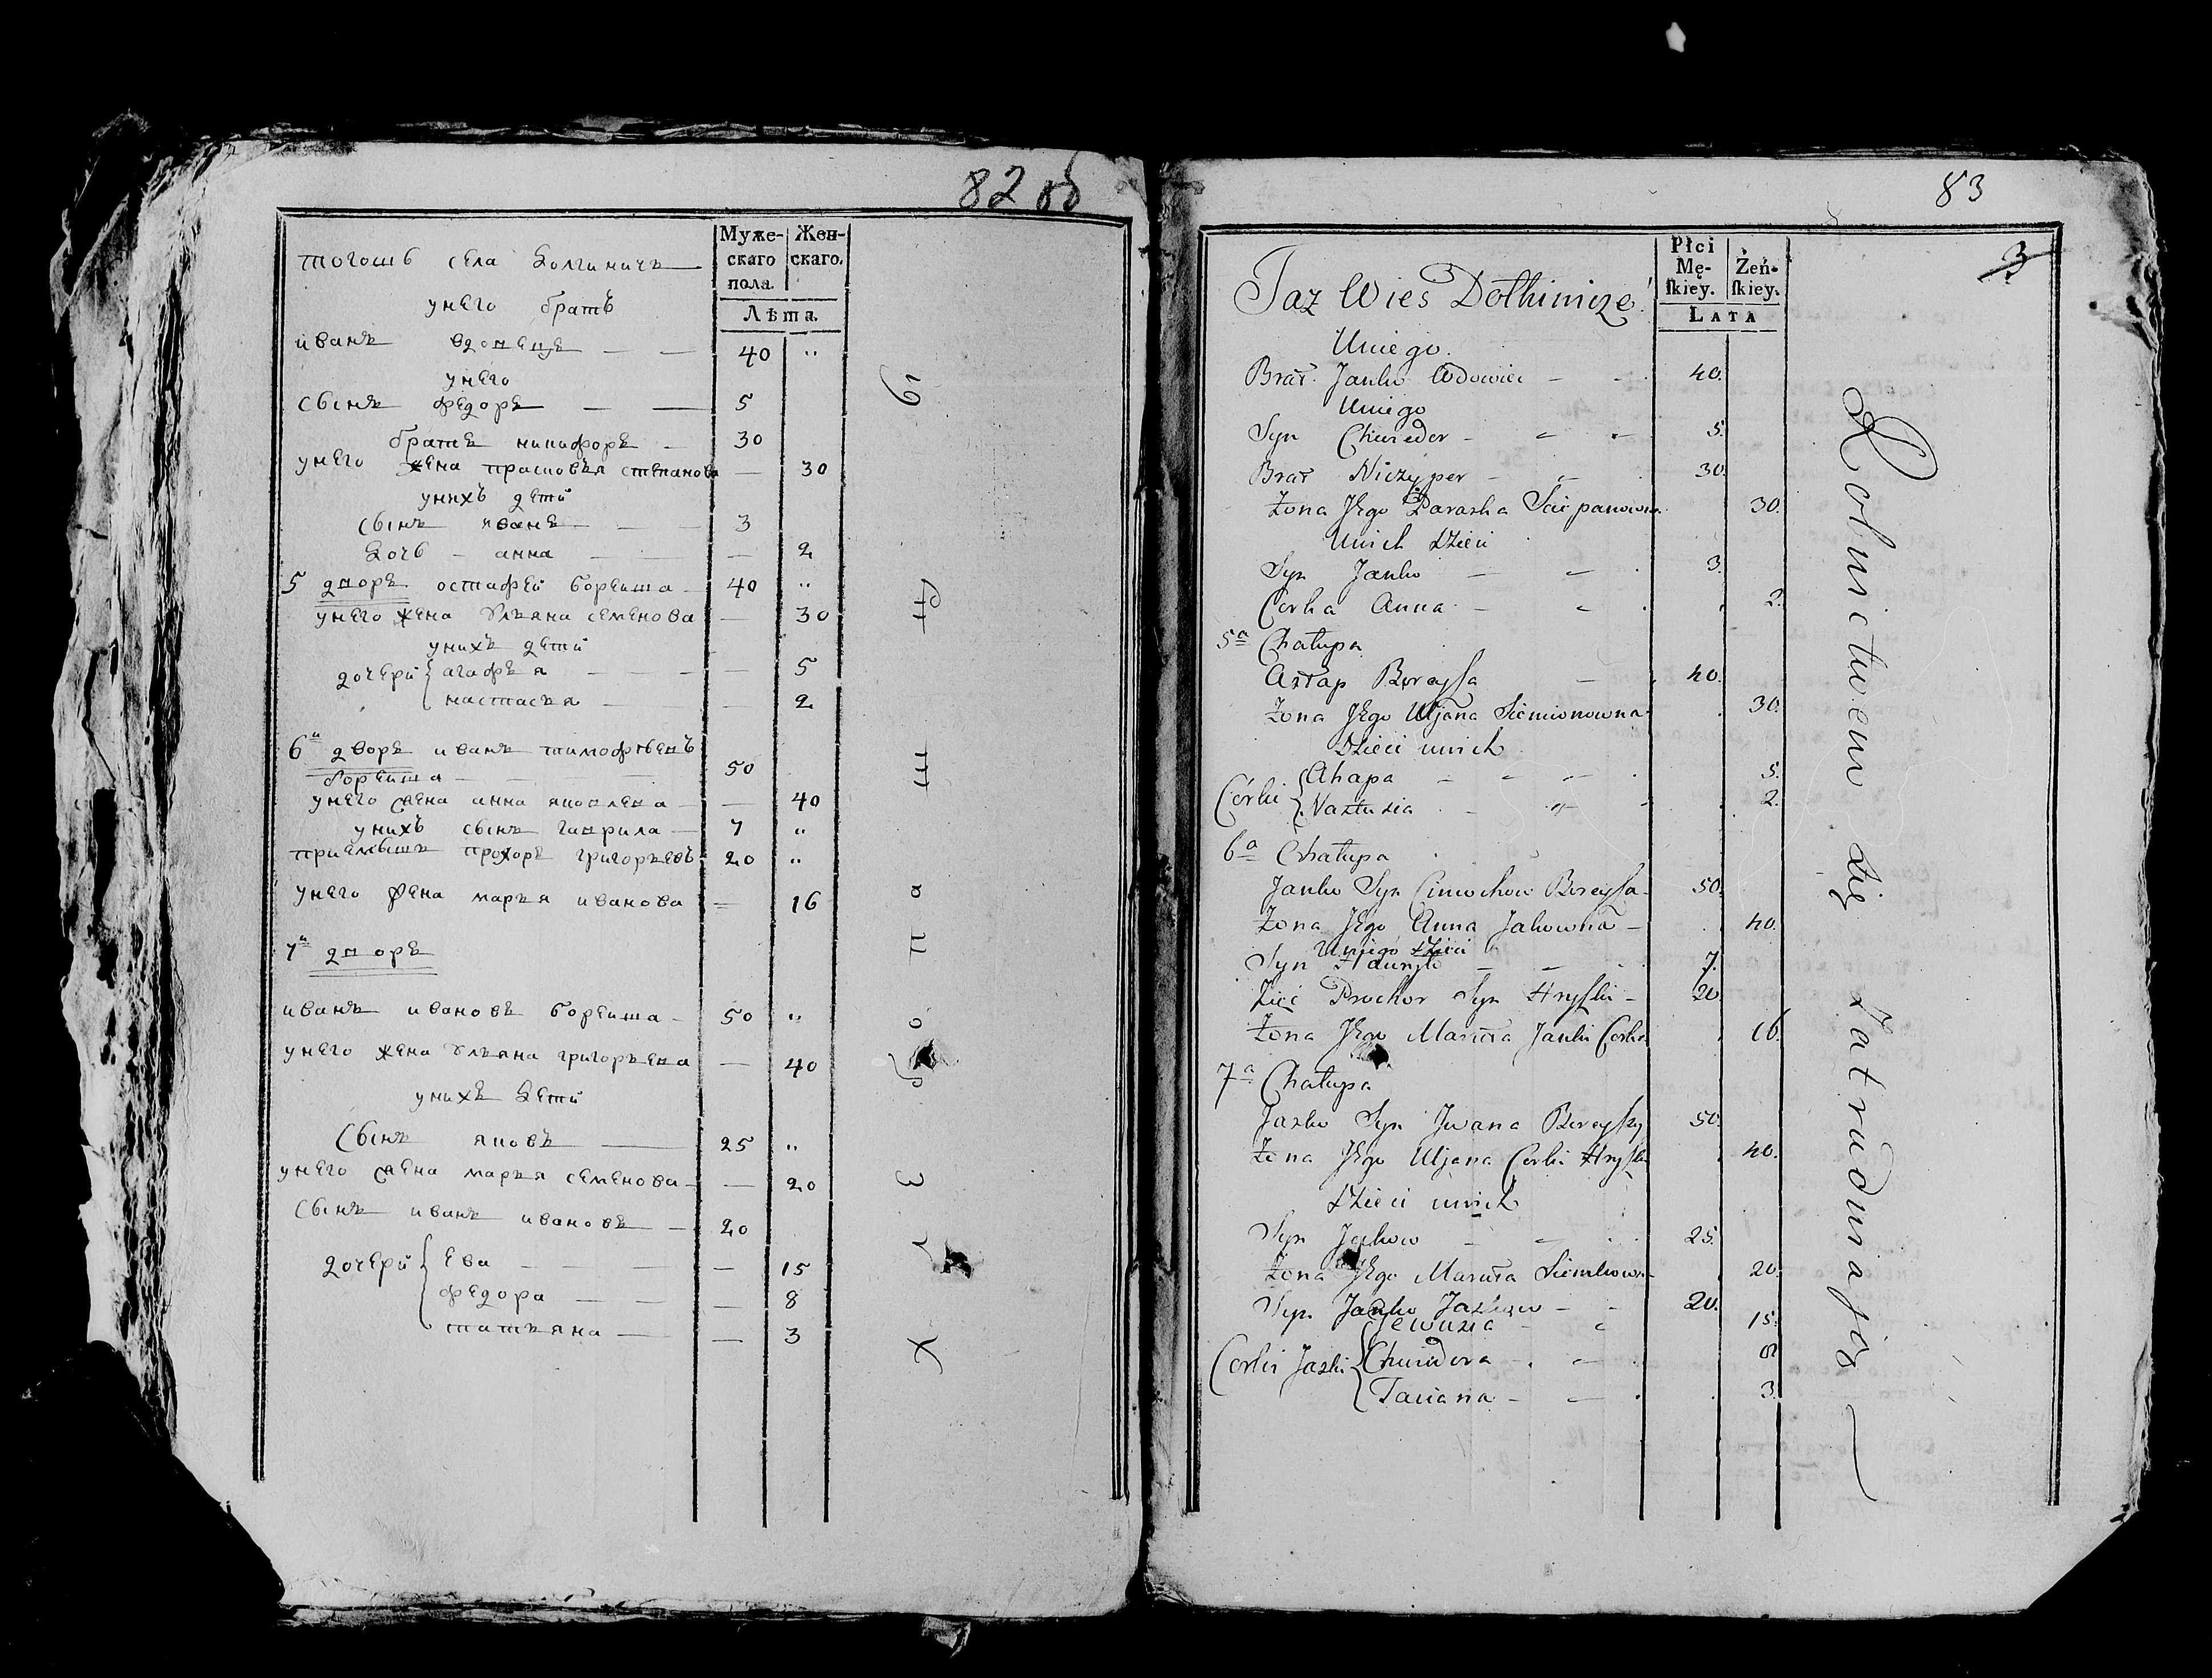 82 об
Муже-
скаго
пола.
Жен-
скаго.
Лѣта.
тогошь села Долгиничъ
унего братъ
иванъ вдовецъ — — 40 "
унего
сынъ федоръ — — 5
братъ никифоръ — 30
унего жена прасковъя степанова — 30
унихъ дети
сынъ иванъ — — 3
дочь — анна — — 2
5 дворъ остафей борейша — 40 "
унего жена Улъяна семенова — 30
унихъ дети
дочери { агафъя — — — — 5
настасъя — — 2
6й дворъ иванъ тимофѣевъ
борейша — — — 50
унего жена анна яковлева — — 40
унихъ сынъ гаврила — 7 "
приемышъ прохоръ григоръевъ 20 "
унего жена маръя иванова — 16
7й дворъ
иванъ ивановъ борейша — 50 "
унего жена Улъяна григоръева — 40
унихъ дети
сынъ яковъ — 25 "
унего жена маръя семенова — — 20
сынъ иванъ ивановъ — 20
дочери { Ева — — — — 15
федора — — — 8
татъяна — — 3
83
3
Płci
Mę-
ſkiey.
Żeń-
ſkiey.
LATA
Taz Wieś Dołhinicze
Uniego
Brat Janko Wdowiec — 40.
Uniego
Syn Chwiedor — 5.
Brat Niczyper — 30.
Żona Jego Paraska Sciepanowna 30.
Unich Dzieci
Syn Janko — 3.
Corka Anna — 2.
5a Chałupa
Astap Bereysa — 40.
Żona Jego Uljana Siemionowna 30.
Dzieci unich
Córki { Ahapa — 5.
Nastusia — 2.
6a Chałupa
Janko Syn Cimochow Bereysa — 50.
Żona Jego Anna Jakowna — 40.
Uniego Dzieci
Syn Hauryło — 7.
Zięć Prochor Syn Hryſki — 20
Żona Jego Maruta Janki Corka 16.
7a Chałupa
Jasko Syn Iwana Bereyſzy 50.
Żona Jego Uljana Corka Hryſki 40.
Dzieci unich
Syn Jakow — 25.
Żona Jego Maruta Siemkowna 20.
Syn Janko Jaskow — 20.
Corki Jaski { Jewusia — 15.
Chwiedora — 8
Taciana — 3.
Rolnictwem się zatrudniają